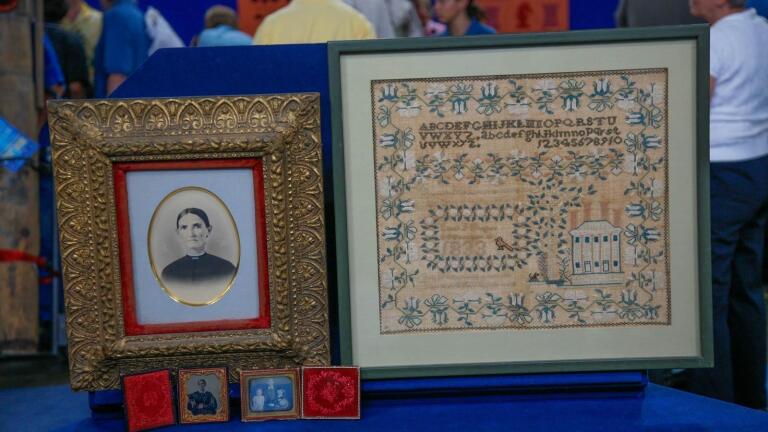 ABCDEFGHIJKLMNOPQRSTU
VWXYZ. abcdefghijklmnopqrst
uvwxyz. 1234567890